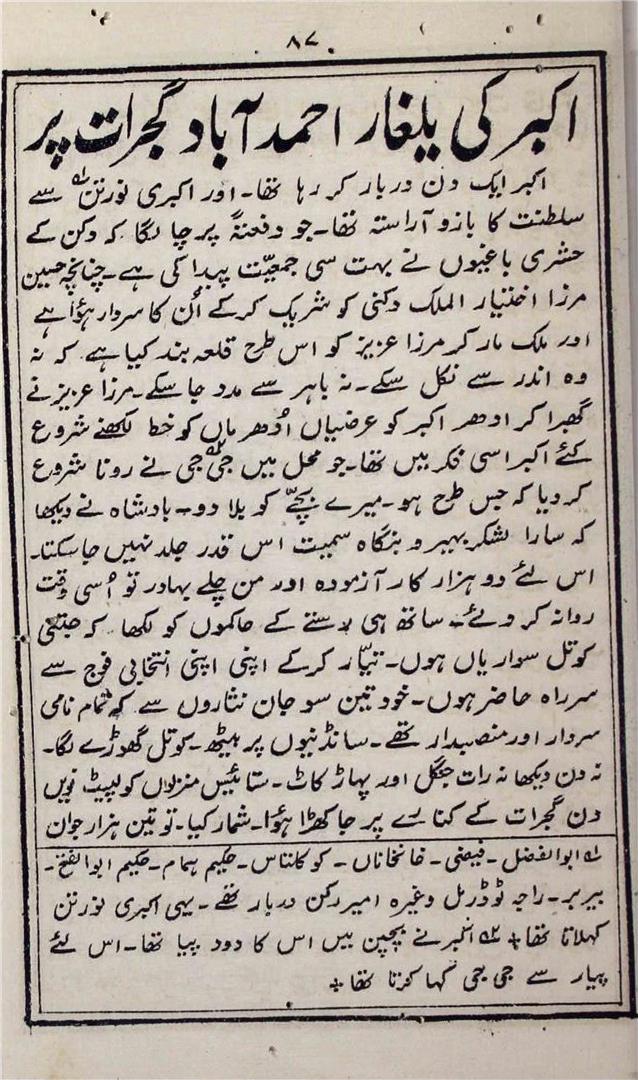 ۸۷
اکبر کی یلغار احمد آباد گجرات پر
اکبر ایک دن دربار کر رہا تھا۔ اور اکبری نورتن ۱؎ سے
سلطنت کا بازو آراستہ تھا۔ جو دفعتہً پرچا لگا کہ دکن کے
حشری باغیوں نے بہت سی جمعیّت پیدا کی ہے۔ چنانچہ حسین
مرزا اختیار الملک دکنی کو شریک کرکے اُن کا سردار ہوُا ہے
اور ملک مار کر مرزا عزیز کو اس طرح قلعہ بند کیا ہے کہ نہ
وہ اندر سے نکل سکے۔ نہ باہر سے مدد جا سکے۔ مرزا عزیز نے
گھبرا کر ادھر اکبر کو عرضیاں اُدھر ماں کو خط لکھنے شروع
کئے اکبر اسی فکر میں تھا۔ جو محل میں جی جی ۲؎ نے رونا شروع
کر دیا کہ جس طرح ہو۔ میرے بچّے کو بلا دو۔ بادشاہ نے دیکھا
کہ سارا لشکر بہیر و بنگاہ سمیت اس قدر جلد نہیں جا سکتا۔
اس لئے دو ہزار کار آزمودہ اور من چلے بہادر تو اُسی وقت
روانہ کر دئے۔ ساتھ ہی رستے کے حاکموں کو لکھا کہ جتنی
کوتل سواریاں ہوں۔ تیّار کرکے اپنی اپنی انتخابی فوج سے
سرراہ حاضر ہوں۔ خود تین سو جان نثاروں سے کہ تمام نامی
سردار اور منصبدار تھے۔ سانڈنیوں پر بیٹھ۔ کوتل گھوڑے لگا۔
نہ دن دیکھا نہ رات جنگل اور پہاڑ کاٹ۔ ستائیس منزلوں کو لپیٹ نویں
دن گجرات کے کنارے پر جا کھڑا ہوُا۔ شمار کیا۔ تو تین ہزار جوان
۱؎ ابوالفضل۔ فیضی۔ خانخاناں۔ کوکلتاس۔ حکیم ہمام۔ حکیم ابوالفتح۔
بیربر۔ راجہ ٹوڈرمل وغیرہ امیر رکن دربار تھے۔ یہی اکبری نورتن
کہلاتا تھا + ۲؎ اکبر نے بچپن میں اس کا دود پیا تھا۔ اس لئے
پیار سے جی جی کہا کرتا تھا +